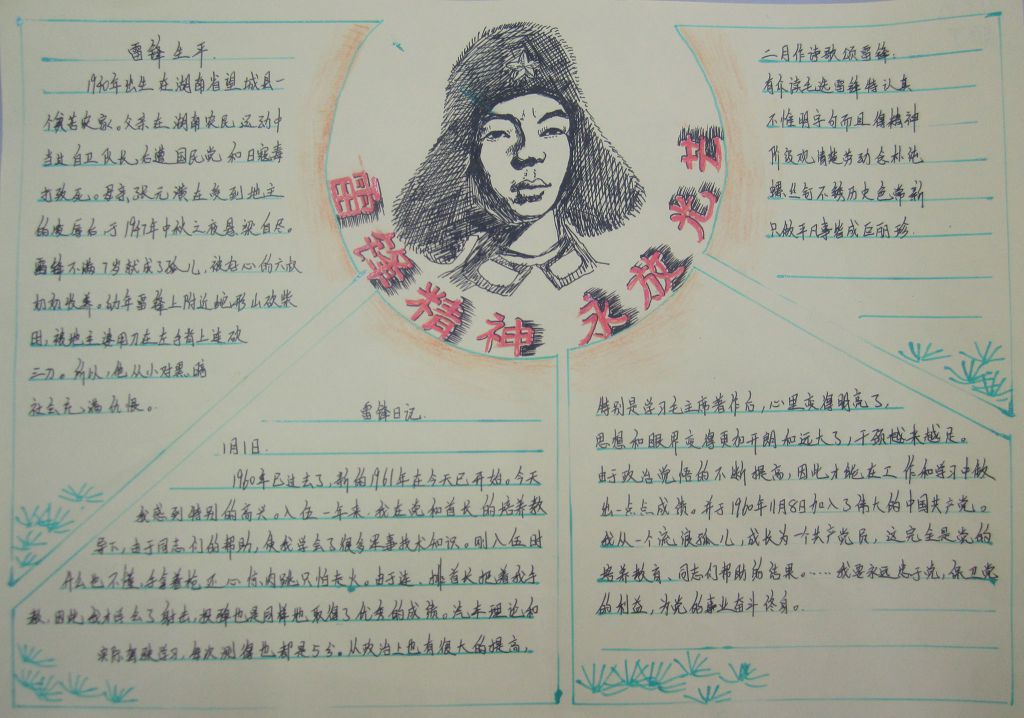 雷锋生平
1940年出生在湖南省望城县一
个贫苦农家。父亲在湖南农民运动中
当过自卫队长,后遭国民党和日寇毒
打致死。母亲张元满在受到地主
的凌辱后,于1947年中秋之夜悬梁自尽。
雷锋不满7岁就成了孤儿,被好心的六叔
奶奶收养。幼年雷锋上附近蛇形山砍柴
时,被地主婆用刀在左手背上连砍
三刀。所以,他从小对黑暗
社会充满仇恨。
雷锋精神永放光芒
二月作诗歌颂雷锋:
有你读毛选雷锋特认真
不惟明字句而且得精神
阶级观清楚劳动念朴纯
螺丝钉不锈历史色常新
只做平凡事皆成巨丽珍
雷锋日记
1月1日
1960年已过去了,新的1961年在今天已开始。今天
我感到特别的高兴。入伍一年来,我在党和首长的培养教
导下,由于同志们的帮助,使我学会了很多军事技术知识。刚入伍时
什么也不懂,手拿着枪还心惊肉跳只怕走火。由于连、排首长把着我手
教,因此我才学会了射击,投弹也是同样地取得了优秀的成绩。汽车理论和
实际驾驶学习,每次测得也都是5分。从政治上也有很大的提高,
特别是学习毛主席著作后,心里变得明亮了,
思想和眼界变得更加开朗和远大了,干劲越来越足。
由于政治觉悟的不断提高,因此才能在工作和学习中做
出一点点成绩。并于1960年11月8日加入了伟大的中国共产党。
我从一个流浪孤儿,成长为一个共产党员,这完全是党的
培养教育、同志们帮助的结果。……我要永远忠于党,保卫党
的利益,为党的事业奋斗终身。